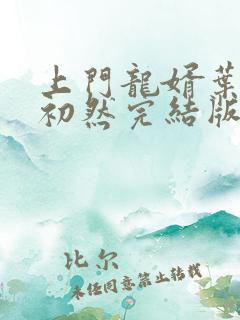 上門龍婿葉
初然完結版
比尔
未任同意禁止转载